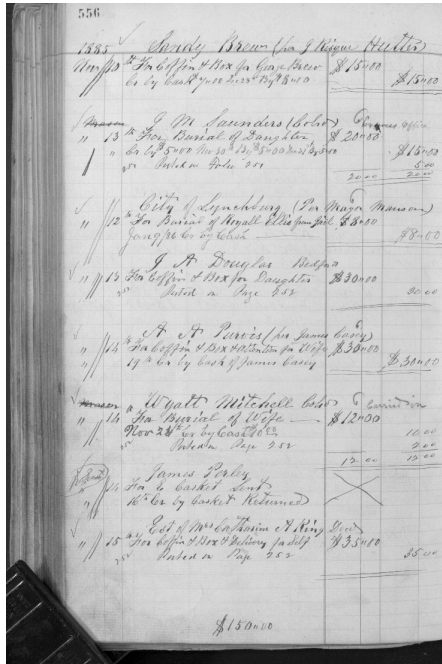 556
1885 Sandy Brews (per J Risque Hutter)
Nov 10th For Coffin & Box for George Brews $15.00
Cr by Cash $15.00
J M Saunders (Cold)
" 13th For Burial of Daughter $20.00
$15.00
5.00
Posted on Folio 252 20.00 20.00
City of Lynchburg (Per Mayor Manson)
" 12th For Burial of Royall Ellis from Jail $8.00
Jany 9/86 Cr by Cash $8.00
J A Douglas Bedford
" 13 For Coffin & Box for Daughter $30.00
Posted on Page 252 30.00
A A Purvis (per James Casey)
" 14th For Coffin & Box & attention for Wife $30.00
19th Cr by Cash of James Casey $30.00
Wyatt Mitchell Cold
" 14 For Burial of Wife $12.00
Nov 24th Cr by Cash 10.00 10.00
Posted on Page 252 2.00
12.00 12.00
James
" 14 For Casket Sent
16th Cr by Casket Returned
Est of Mrs Catharine A King Decd
" 15th For Coffin & Box & Delivery for Self $35.00
Posted on Page 252 35.00
$150.00